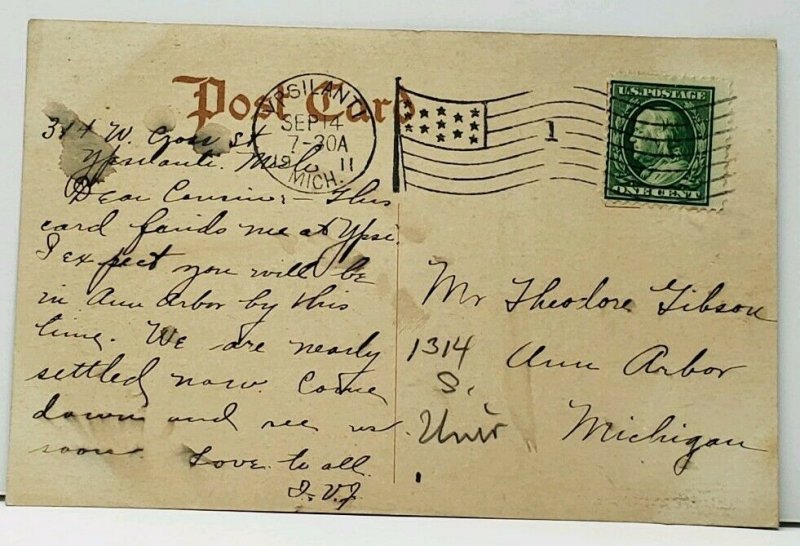 Post Card
YPSILANTI
SEP 14
7-30A
19 11
MICH.
1
U.S. POSTAGE
ONE CENT
314 W. Cross St
Ypsilanti. Mich.
Dear Cousins:- This
card finds me at Ypsi.
I expect you will be
in Ann Arbor by this
time. We are nearly
settled now. Come
down and see us
soon. Love to all.
Mr Theodore Gibson
1314 Ann Arbor
S.
Univ Michigan